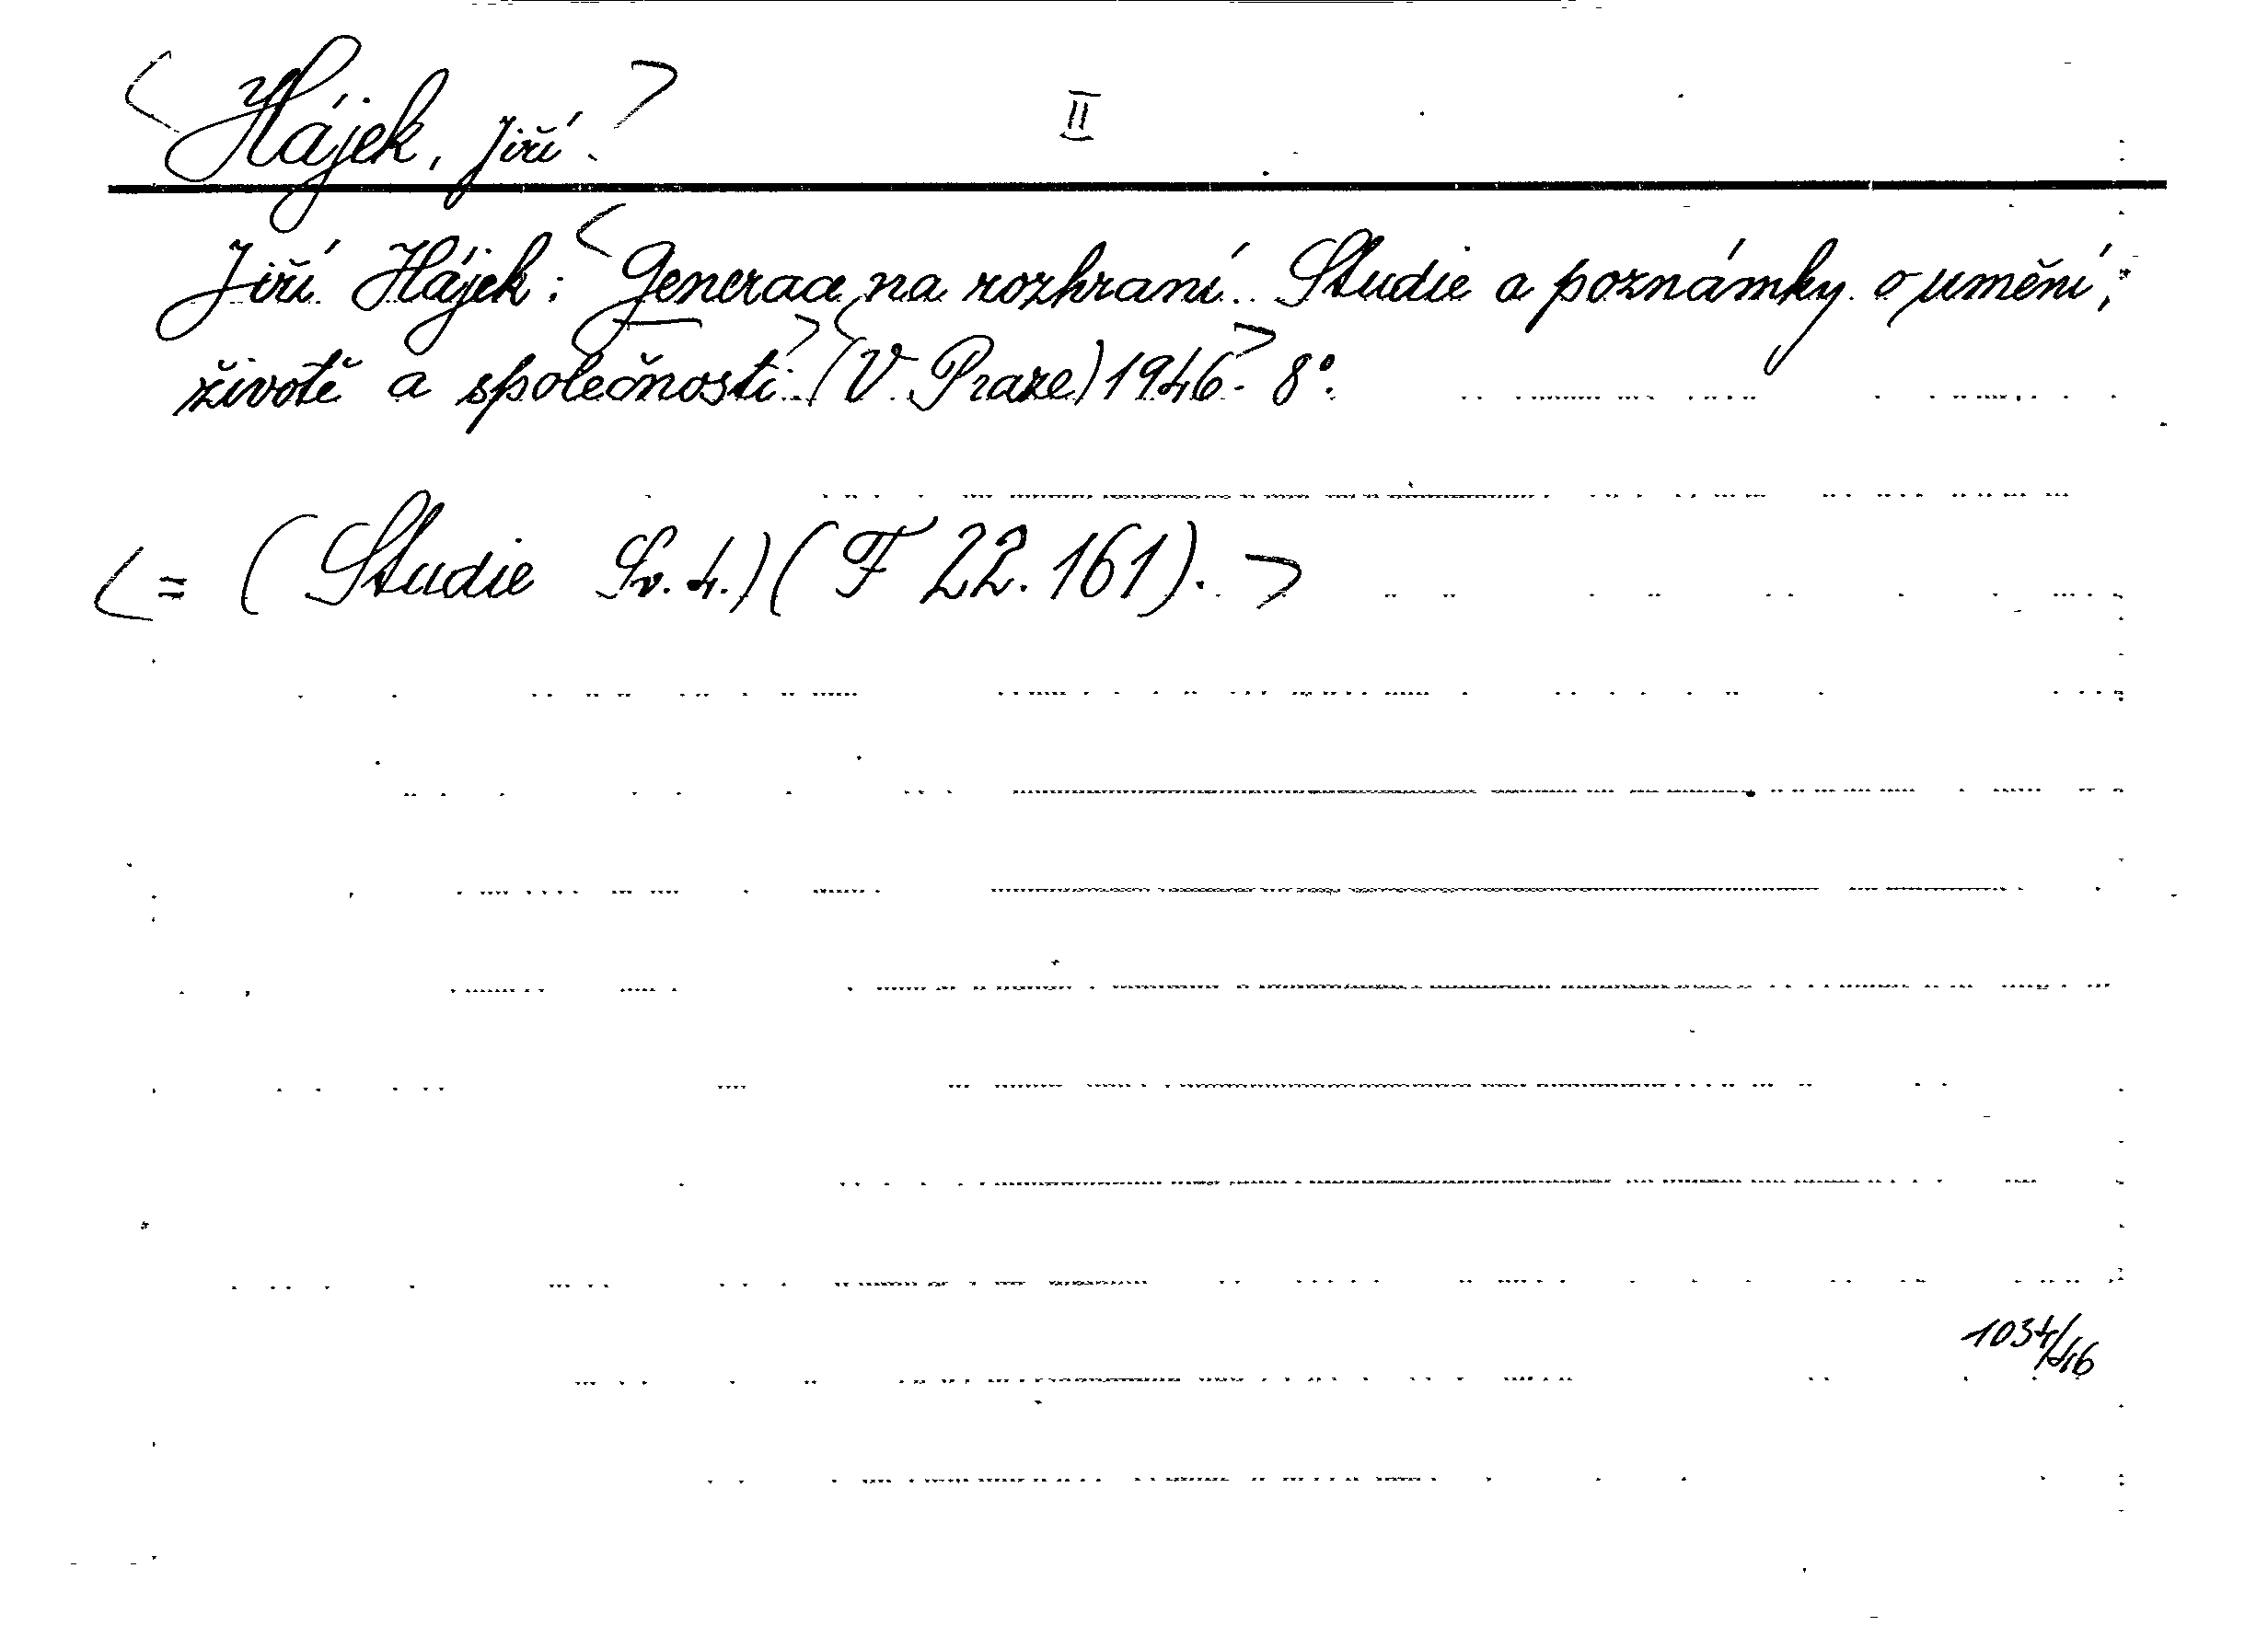 <Hájek, Jiří.> II
Jiří Hájek: <Generace na rozhraní. Studie a poznámky o umění,
životě a společnosti.> <(V Praze) 1946.> 8°.
<= (Studie Sv. 4.) (F 22.161).>
1034/46